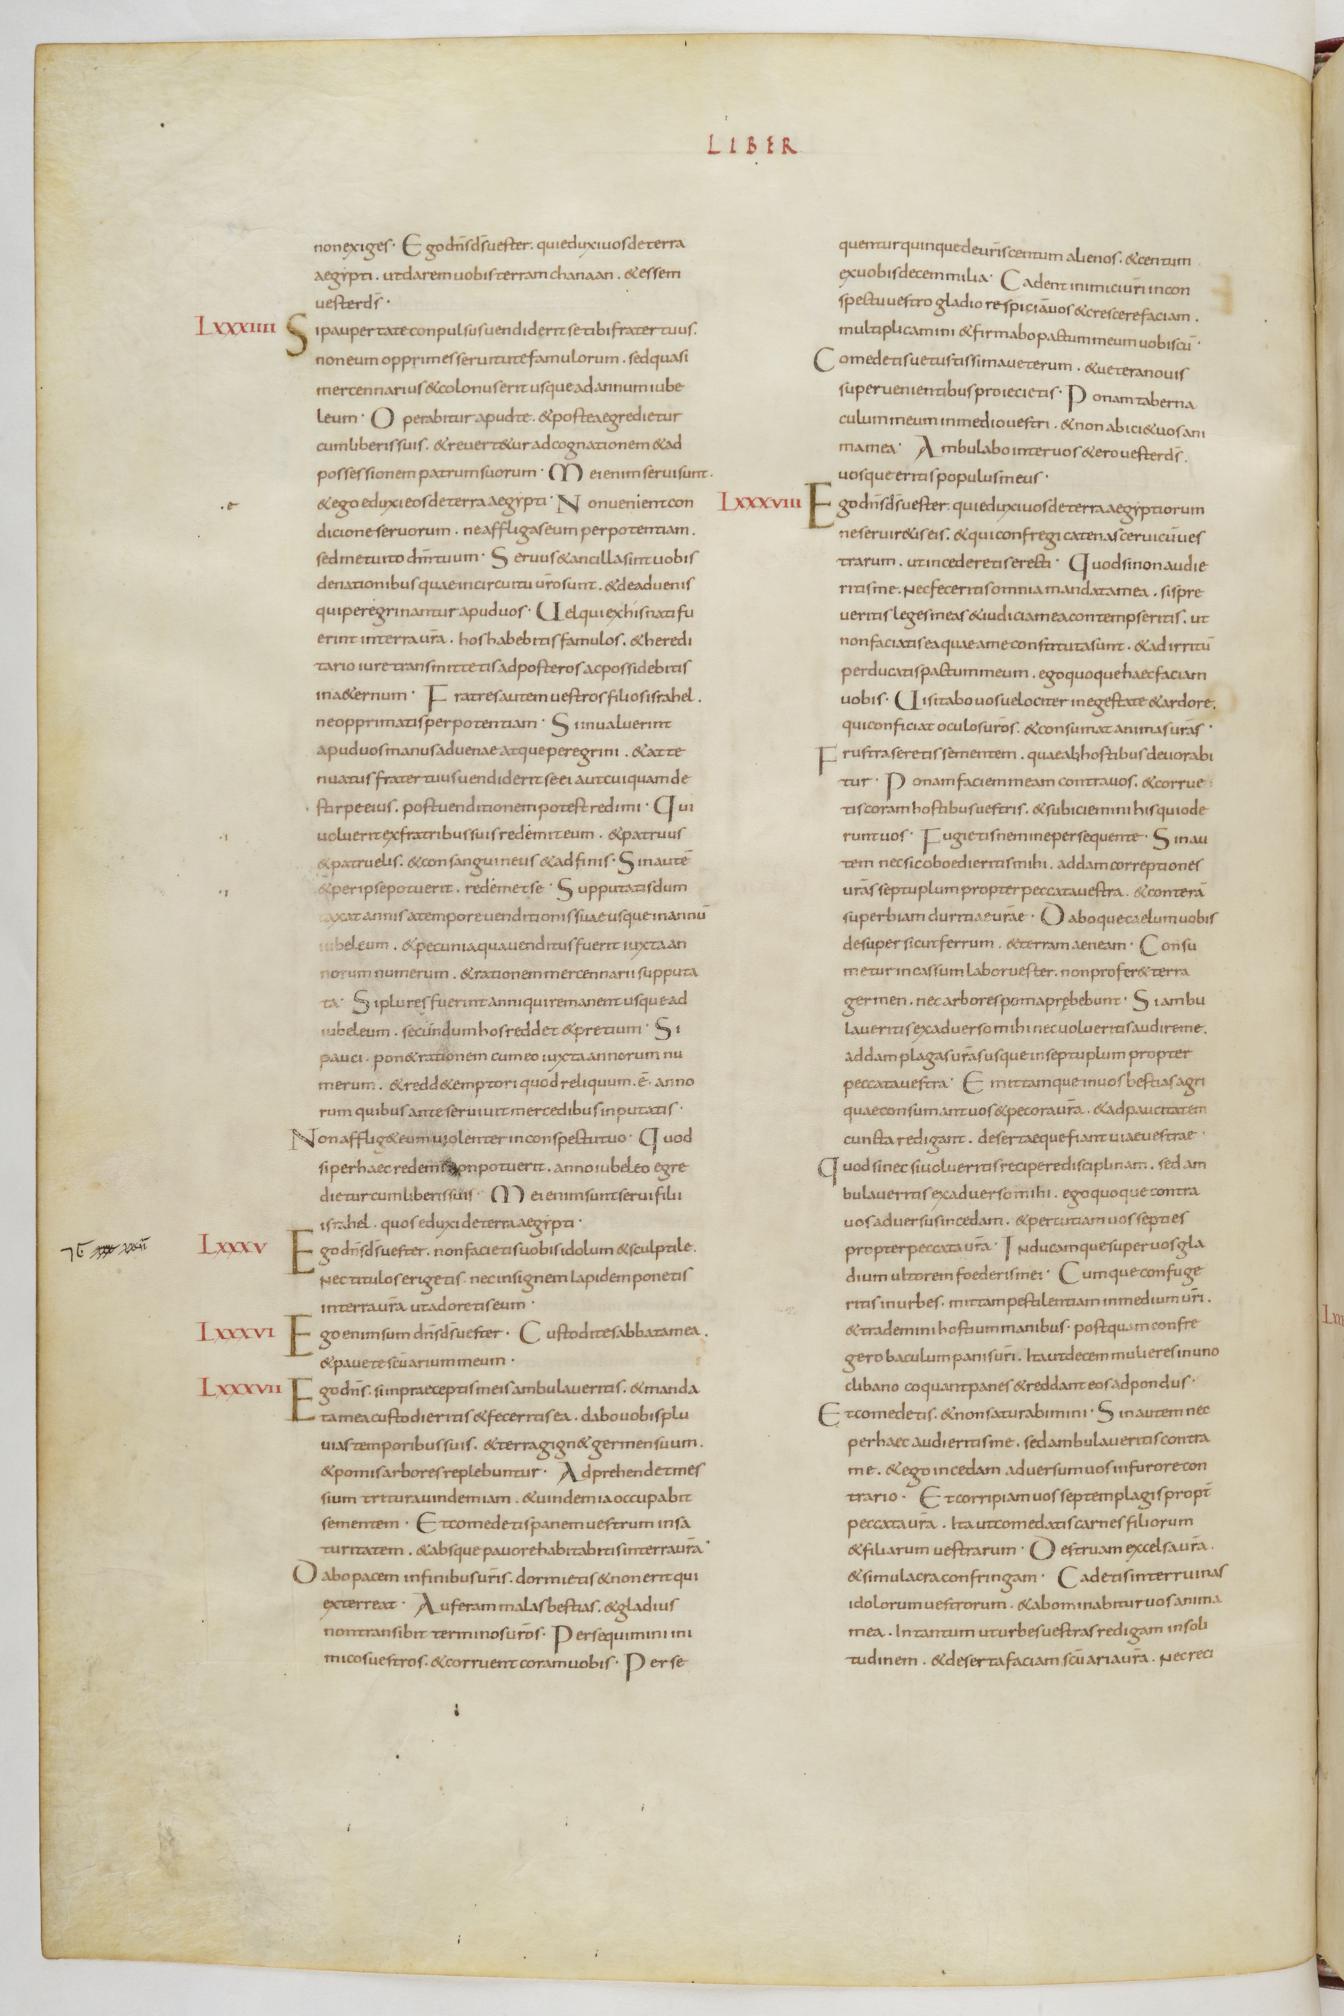 LIBER
non exiges· Ego dn̄s ds̄ uester. qui eduxi uos de terra
aegypti. ut darem uobis terram chanaan. & essem
uester ds̄·
LXXXIIII Si paupertate conpulsus uendiderit se tibi frater tuus.
non eum opprimes seruitute famulorum. sed quasi
mercennarius & colonus erit usque ad annum iube
leum· Operabitur apud te. & postea egredietur
cum liberis suis. & reuert&ur ad cognationem & ad
possessionem patrum suorum· Mei enim serui sunt.
& ego eduxi eos de terra aegypti· Non uenient con
dicione seruorum. ne affligas eum per potentiam.
sed metuito dn̄m tuum· Seruus & ancilla sint uobis
de nationibus quae in circuitu ur̄o sunt. & de aduenis
qui peregrinantur apud uos· Uel qui ex his nati fu
erint in terra ur̄a. hos habebitis famulos. & heredi
tario iure transmittetis ad posteros ac possidebitis
in a&ernum· Fratres autem uestros filios israhel.
ne opprimatis per potentiam· Si inualuerint
apud uos manus aduenae atque peregrini. & atte
nuatus frater tuus uendiderit se ei aut cuiquam de
stirpe eius. post uenditionem potest redimi· Qui
uoluerit ex fratribus suis redemit eum. & patruus
& patruelis. & consanguineus & adfinis· Sin autē
& per ipse potuerit. redemet se· Supputatis dum
taxat annis a tempore uenditionis suae usque in annū
iubeleum. & pecunia qua uenditus fuerit iuxta an
norum numerum. & rationem mercennarii supputa
ta· Si plures fuerint anni qui remanent usque ad
iubeleum. secundum hos reddet & pretium· Si
pauci. pon& rationem cum eo iuxta annorum nu
merum. & redd& emptori quod reliquum. ē. anno
rum quibus ante seruiuit mercedibus inputatis·
Non afflig& eum uiolenter in conspectu tuo· Quod
si per haec redemi non potuerit. anno iubeleo egre
dietur cum liberis suis· Mei enim sunt serui filii
israhel. quos eduxi de terra aegypti·
LXXXV Ego dn̄s ds̄ uester. non facietis uobis idolum & sculptile.
Nec titulos erigetis. nec insignem lapidem ponetis
in terra ur̄a ut adoretis eum·
LXXXVI Ego enim sum dn̄s ds̄ uester· Custodite sabbata mea.
& pauete scūarium meum·
LXXXVII Ego dn̄s. si in praeceptis meis ambulaueritis. & manda
ta mea custodieritis & feceritis ea. dabo uobis plu
uias temporibus suis. & terra gign& germen suum.
& pomis arbores replebuntur· Adprehendet mes
sium tritura uindemiam. & uindemia occupabit
sementem· Et comedetis panem uestrum in sa
turitatem. & absque pauore habitabitis in terra ur̄a·
Dabo pacem in finibus ur̄is. dormietis & non erit qui
exterreat· Auferam malas bestias. & gladius
non transibit terminos ur̄os· Persequimini ini
micos uestros. & corruent coram uobis· Perse
quentur quinque de ur̄is centum alienos. & centum
ex uobis decem milia· Cadent inimici ur̄i in con
spectu uestro gladio respiciā uos & crescere faciam.
multiplicamini & firmabo pactum meum uobiscū·
Comedetis uetustissima ueterum. & uetera nouis
superuenientibus proiecietis· Ponam taberna
culum meum in medio uestri. & non abici& uos ani
ma mea· Ambulabo inter uos & ero uester ds̄.
uosque eritis populus meus·
LXXXVIII Ego dn̄s ds̄ uester. qui eduxi uos de terra aegyptiorum
ne seruir&is eis. & qui confregi catenas ceruicū ues
trarum. ut incederetis erecti· Quod si non audie
ritis me. Nec feceritis omnia mandata mea. si spre
ueritis leges meas & iudicia mea contempseritis. ut
non faciatis ea quae a me constituta sunt. & ad irritū
perducatis pactum meum. ego quoque haec faciam
uobis· Uisitabo uos uelociter in egestate & ardore.
qui conficiat oculos ur̄os. & consumat animas ur̄as·
Frustra seretis sementem. quae ab hostibus deuorabi
tur· Ponam faciem meam contra uos. & corrue
tis coram hostibus uestris. & subiciemini his qui ode
runt uos· Fugietis nemine persequente· Sin au
tem nec sic oboedieritis mihi. addam correptiones
ur̄as septuplum propter peccata uestra. & conterā
superbiam duritiae ur̄ae· Daboque caelum uobis
desuper sicut ferrum. & terram aeneam· Consu
metur in cassum labor uester. non profer& terra
germen. nec arbores poma prębebunt· Si ambu
laueritis ex aduerso mihi nec uolueritis audire me.
addam plagas ur̄as usque in septuplum propter
peccata uestra· Emittamque in uos bestias agri
quae consumant uos & pecora ur̄a. & ad paucitatem
cuncta redigant. desertaeque fiant uiae uestrae·
Quod si nec si uolueritis recipere disciplinam. sed am
bulaueritis ex aduerso mihi. ego quoque contra
uos aduersus incedam. & percutiam uos septies
propter peccata ur̄a· Inducamque super uos gla
dium ultorem foederis mei· Cumque confuge
ritis in urbes. mittam pestilentiam in medium ur̄i.
& trademini hostium manibus. postquam confre
gero baculum panis ur̄i. Ita ut decem mulieres in uno
clibano coquant panes & reddant eos ad pondus·
Et comedetis. & non saturabimini· Sin autem nec
per haec audieritis me. sed ambulaueritis contra
me. & ego incedam aduersum uos in furore con
trario· Et corripiam uos septem plagis propt̄
peccata ur̄a. Ita ut comedatis carnes filiorum
& filiarum uestrarum· Destruam excelsa ur̄a.
& simulacra confringam· Cadetis inter ruinas
idolorum uestrorum. & abominabitur uos anima
mea. In tantum ut urbes uestras redigam in soli
tudinem. & deserta faciam scūaria ur̄a. Nec reci